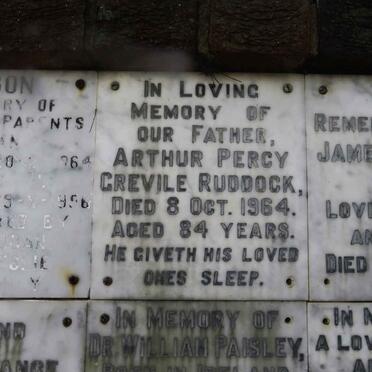 SON
RY OF
PARENTS
1964
BY
IN LOVING
MEMORY OF
OUR FATHER,
ARTHUR PERCY
GREVILE RUDDOCK,
DIED 8 OCT. 1964.
AGED 84 YEARS.
HE GIVETH HIS LOVED
ONES SLEEP.
REME
JAME
LOV
AN
DIED
ND
IN MEMORY OF
DR. WILLIAM PAISLEY,
IN M
A LOV